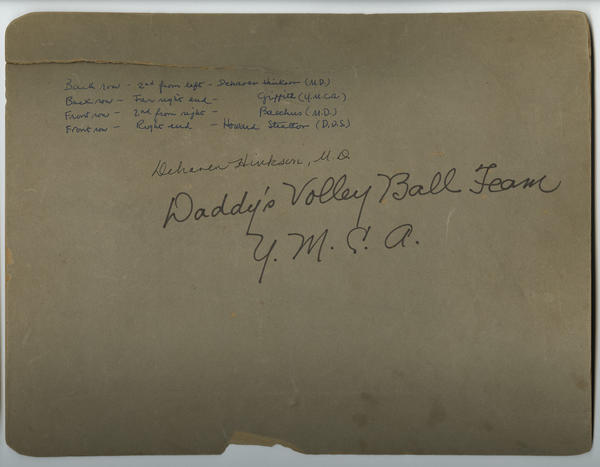 Back row - 2nd from left - Dehaven Hinkson (M.D.)
Back row - Far right end - Griffith (Y.M.C.A.)
Front row - 2nd from right - Bacchus (M.D.)
Front row - Right end - Howard Stratton (D.D.S.)
Dehaven Hinkson, M.D.
Daddy's Volley Ball Team
Y. M. C. A.